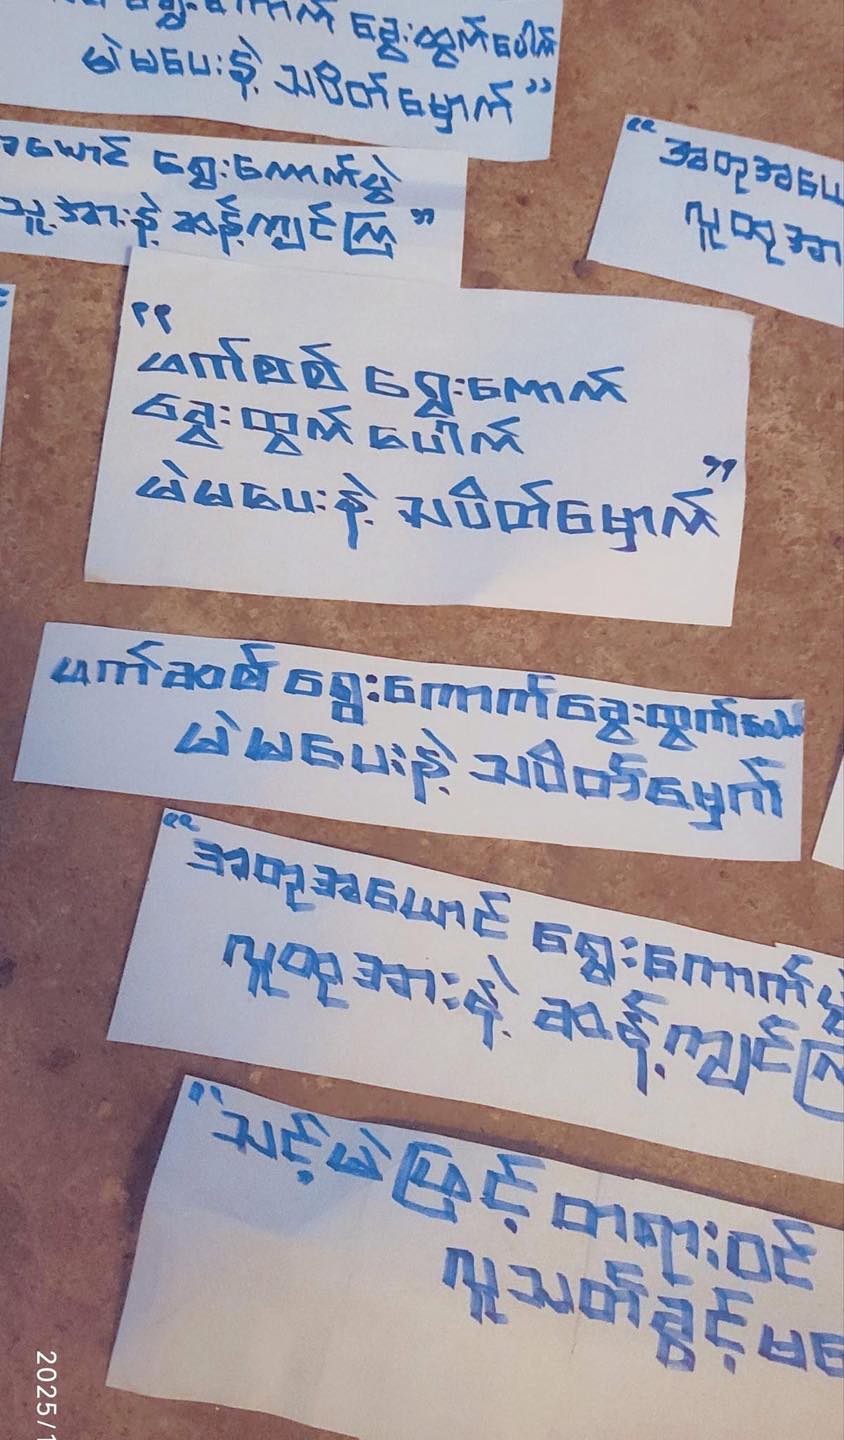 ရွေးကောက် ခွေးထွက်ပေါက်
မဲမပေးနဲ့ သပိတ်မှောက်”
အယောင် ရွေးကောက်ပွဲ
သူ့အားနဲ့ ဆန့်ကျင်ကြ”
“အတုအယော
လူထုအာ
“
ဖက်စစ် ရွေးကောက်
ခွေးထွက်ပေါက်
မဲမပေးနဲ့ သပိတ်မှောက်
”
ဖက်ဆစ် ရွေးကောက်ခွေးထွက်ပေါ
မဲမပေးနဲ့ သပိတ်မှောက်
“အတုအယောင် ရွေးကောက်ပွဲ
လူထုအားနဲ့ ဆန့်ကျင်ကြ
“သင့်မဲဖြင့် တရားဝင်
လူသတ်ခွင့်မပေ
2025/1